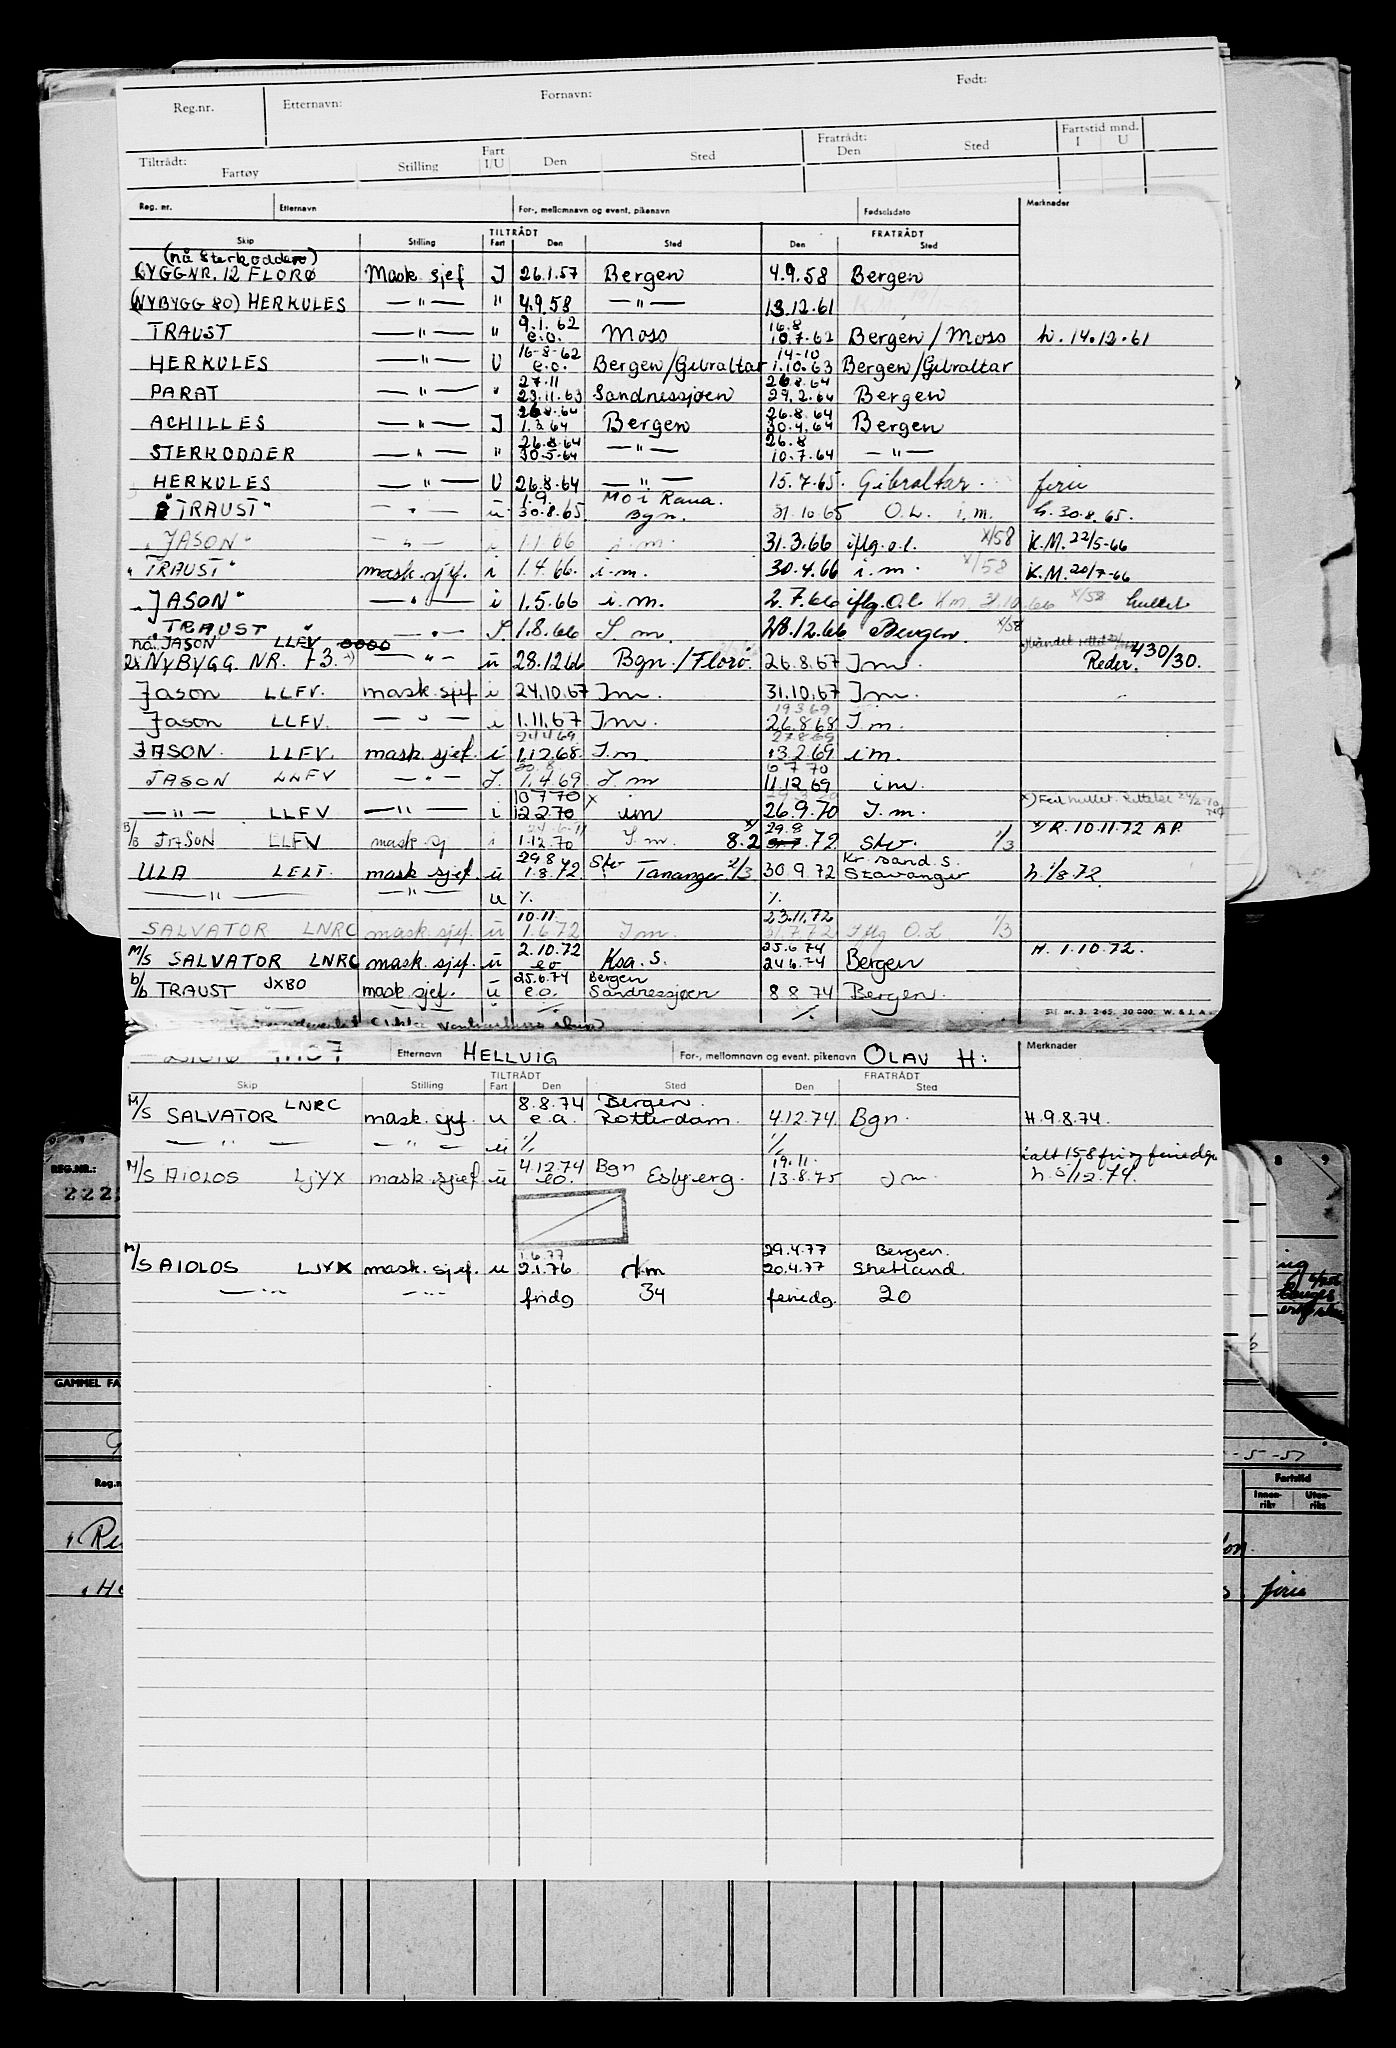 Reg.nr. Etternavn: Fornavn: Født:
Tiltrådt: Fartøy Stilling Fart I/U Den Sted Fratrådt: Den Sted Fartstid mnd. I U
Reg. nr. Etternavn For-, mellomnavn og event. pikenavn Fødselsdato Merknader
TILTRÅDT FRATRÅDT
Skip Stilling Fart Den Sted Den Sted
(nå Sterkodder)
BYGGNR. 12 FLORØ Mask. sjef I 26.1.57 Bergen 4.9.58 Bergen
(NYBYGG 80) HERKULES — " — " 4.9.58 — " — 13.12.61
9.1.62 16.8
TRAUST — " — " e.o. Moss 10.7.62 Bergen/Moss h. 14.12.61
16-8-62 14-10
HERKULES — " — U e.o. Bergen/Gibraltar 1.10.63 Bergen/Gibraltar
27.11 26.8.64
PARAT — " — " 23.11.63 Sandnessjøen 29.2.64 Bergen
26.8.64 26.8.64
ACHILLES — " — I 1.3.64 Bergen 30.4.64 Bergen
26.8.64 26.8
STERKODDER — " — " 30.5.64 — " — 10.7.64 — " —
HERKULES — " — U 26.8.64 — " — 15.7.65. Gibraltar. ferie
1.9. Mo i Rana.
"TRAUST" — " — u 30.8.65 Bgn. 31.10.65 O.L. i.m. h. 30.8.65.
"JASON" — " — i 1.1.66 i.m. 31.3.66 iflg. o.l. x/58 K.M. 22/5-66
"TRAUST" mask. sjef. i 1.4.66. i.m. 30.4.66 i.m. x/58 K.M. 20/7-66
"JASON" — " — i 1.5.66 i.m. 2.7.66 iflg. O.l. Km. 31.10.66 x/58 hullet
TRAUST — " — I 1.8.66 I m. 28.12.66 Bergen. x/58
nå JASON LLFV
NYBYGG. NR. 73. — " — u 28.12.66 Bgn./Florø. 26.8.67 I m. Reder. 430/30.
Jason LLFV. mask. sjef i 24.10.67 Im. 31.10.67 Im.
19369
Jason LLFV. — " — i 1.11.67 Im. 26.8.68 I.m.
24469 27.8.69
JASON. LLFV. mask. sjef. i 1.12.68. I.m. 13.2.69 i.m.
6 7 70
JASON LLFV — " — I. 1.4.69. I.m 11.12.69 im.
10 7 70 x
— " — LLFV — " — i 12.2.70 im 26.9.70 I.m. x) Feil hullet. Rettelse
29.8
B/B JASON LLFV mask. sj i 1.12.70 I.m. 8.2 72 Stv. 1/3 x/ R. 10.11.72 AP.
29.8 Stv Kr. sand S.
ULA LELT. mask. sjef. u 1.8.72 Tananger 2/3 30.9.72 Stavanger h. 1/8.72.
— " — — " — u ٪ ٪
10.11. 23.11.72
SALVATOR LNRC mask. sjef. u 1.6.72 I m. 31.7.72 Iflg O.L 1/3
2.10.72 25.6.74
M/S SALVATOR LNRC mask. sjef. u eo Ksa. S. 24.6.74 Bergen H. 1.10.72.
25.6.74 Bergen
b/b TRAUST JXBO mask. sjef. u e.o. Sandnessjøen 8.8.74 Bergen.
Skj. nr. 3. 2-65. 30 000. W. & J. A.
Etternavn HELLVIG For-, mellomnavn og event. pikenavn OLAV H: Merknader
TILTRÅDT FRATRÅDT
Skip Stilling Fart Den Sted Den Sted
8.8.74 Bergen.
M/S SALVATOR LNRC mask. sjef. u e.o. Rotterdam. 4.12.74 Bgn. H. 9.8.74.
— " — — " — u ٪ ٪ ialt 158 fri og feriedgr.
4.12.74 Bgn 19.11.
M/S AIOLOS LJYX mask. sjef. u eo. Esbjerg. 13.8.75 I m. h. 5/12.74.
1.6.77 29.4.77 Bergen.
M/S AIOLOS LJYX mask. sjef. u 2.1.76 Im 20.4.77 Shetland.
— " — — " — fridg 34 feriedg. 20
REG.NR.: 8 9
222
GAMMEL FA
-5-57
Reg.n Fartstid
Innen-riks Uten-riks
ferie